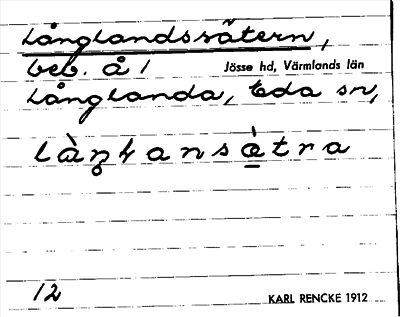 Långlandssätern,
beb. å /
Jösse hd, Värmlands län
Långlanda, Eda sn,
låŋ̥ɩansætra
12
KARL RENCKE 1912